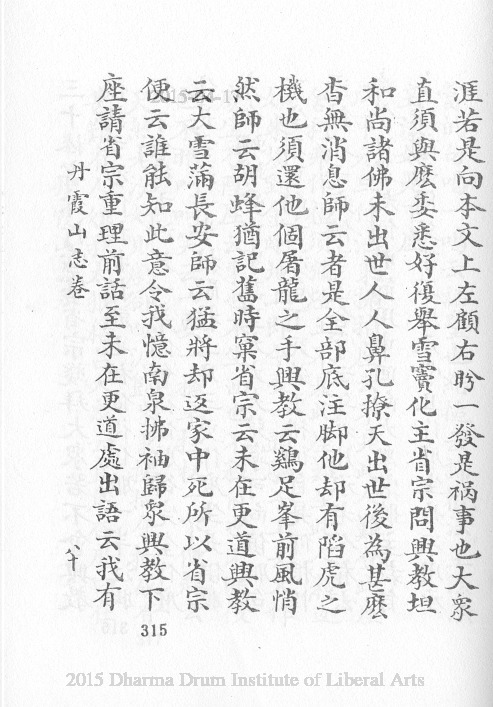 涯若是向本文上左顧右盻一發是禍事也大衆
直須與麽委悉好復舉雪竇化主省宗問興教坦
和尚諸佛未出世人人鼻孔撩天出世後為甚麽
杳無消息師云者是全部底注脚他却有陷虎之
機也須還他個屠龍之手興教云鷄足峯前風悄
然師云胡蜂猶記舊時窠省宗云未在更道興教
云大雪滿長安師云猛將却返家中死所以省宗
便云誰能知此意令我憶南泉拂袖歸衆興教下
座請省宗重理前話至未在更道處出語云我有
丹霞山志卷
八十
315
2015 Dharma Drum Institute of Liberal Arts